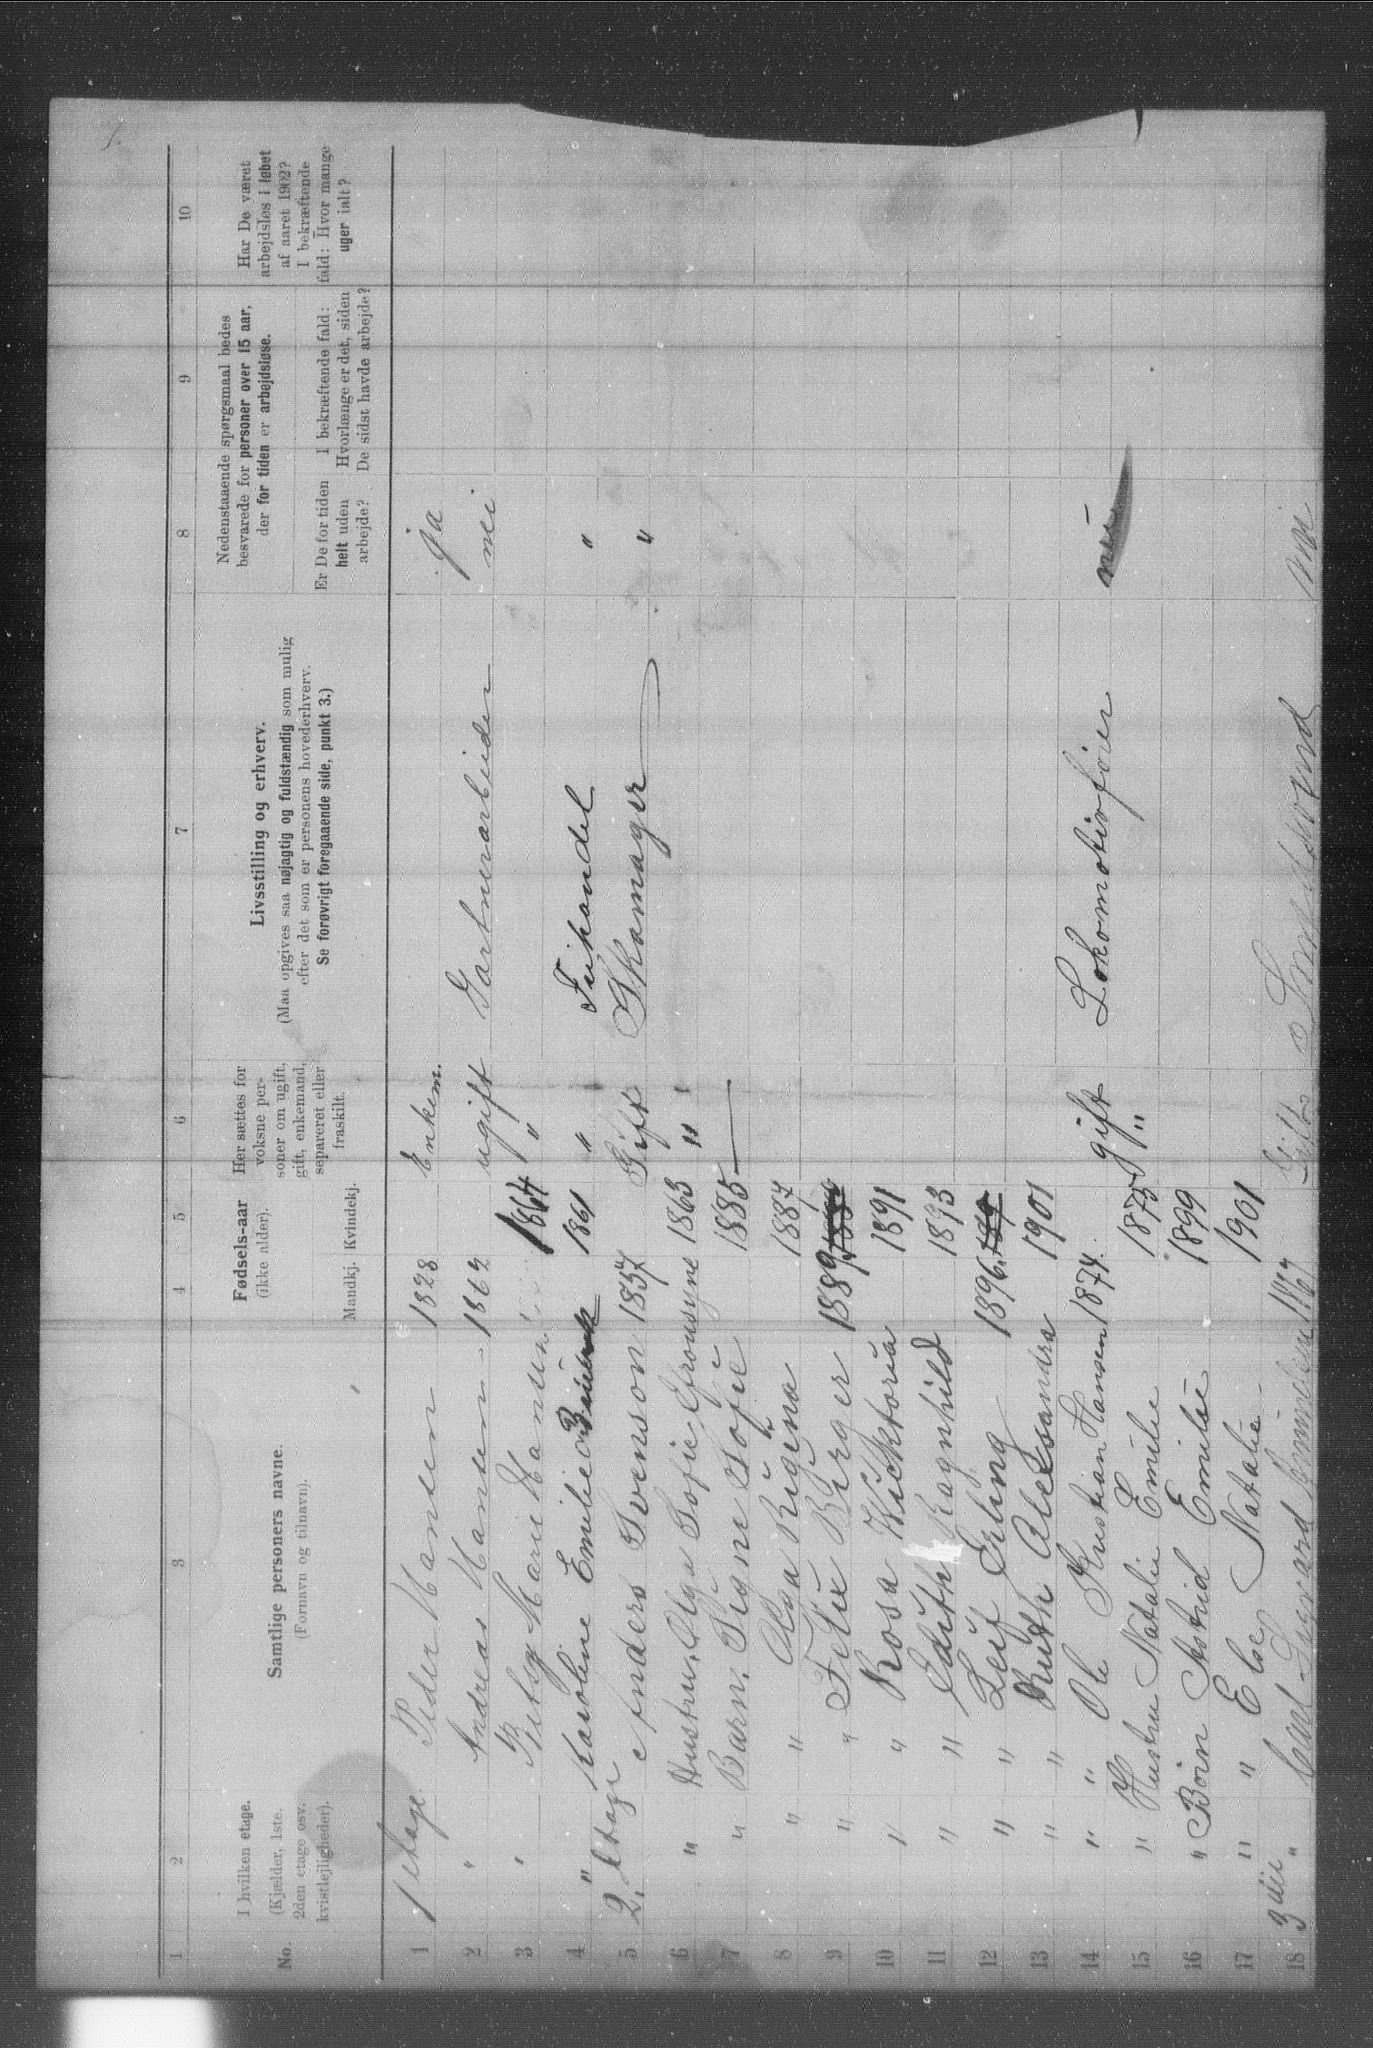 1 2 3 4 5 6 7 8 9 10
No.
I hvilken etage.
(Kjælder, 1ste.
2den etage osv.
kvistlejligheder).
Samtlige personers navne.
(Fornavn og tilnavn).
Fødsels-aar
(ikke alder).
Mandkj. Kvindekj.
Her sættes for
voksne per-
soner om ugift,
gift, enkemand,
separeret eller
fraskilt.
Livsstilling og erhverv.
(Maa opgives saa nøjagtig og fuldstændig som mulig
efter det som er personens hovederhverv.
Se forøvrigt foregaaende side, punkt 3.)
Nedenstaaende spørgsmaal bedes
besvarede for personer over 15 aar,
der for tiden er arbejdsløse.
Er De for tiden
helt uden
arbejde?
I bekræftende fald:
Hvorlænge er det, siden
De sidst havde arbejde?
Har De været
arbejdsløs i løbet
af aaret 1902?
I bekræftende
fald: Hvor mange
uger ialt?
1 1 etage Peder Hansen 1828 Enkem. ja
2 " Andreas Hansen 1862 ugift Gartnerarbeider nei
3 " Betsy Marie Hansen 1864 "
4 " Karoline Emilie 1861 " Frihandel "
5 2. Etage Anders Svenson 1857 Gift Skomager "
6 " Hustru. Olga Sofie Efronsyne 1863 "
7 " Barn. Signe Sofie 1885
8 " " Olga Rigina 1887
9 " " Felix Birger 1889
10 " " Rosa Wicktoria 1891
11 " " Edith Ragnhild 1893
12 " " Leif Erling 1896
13 " " Ruth Aleksandra 1901
14 " " Ole Kristian Hansen 1874 gift Lokomotivfører nei
15 " Hustru Natalie Emilie 1873 "
16 " Børn Astrid Emilie 1899
17 " " Else Natalie 1901
18 3die " Carl Sigvard 1867 Gift nei